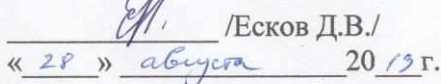 /Есков Д.В./
« 28 » августа 2019 г.